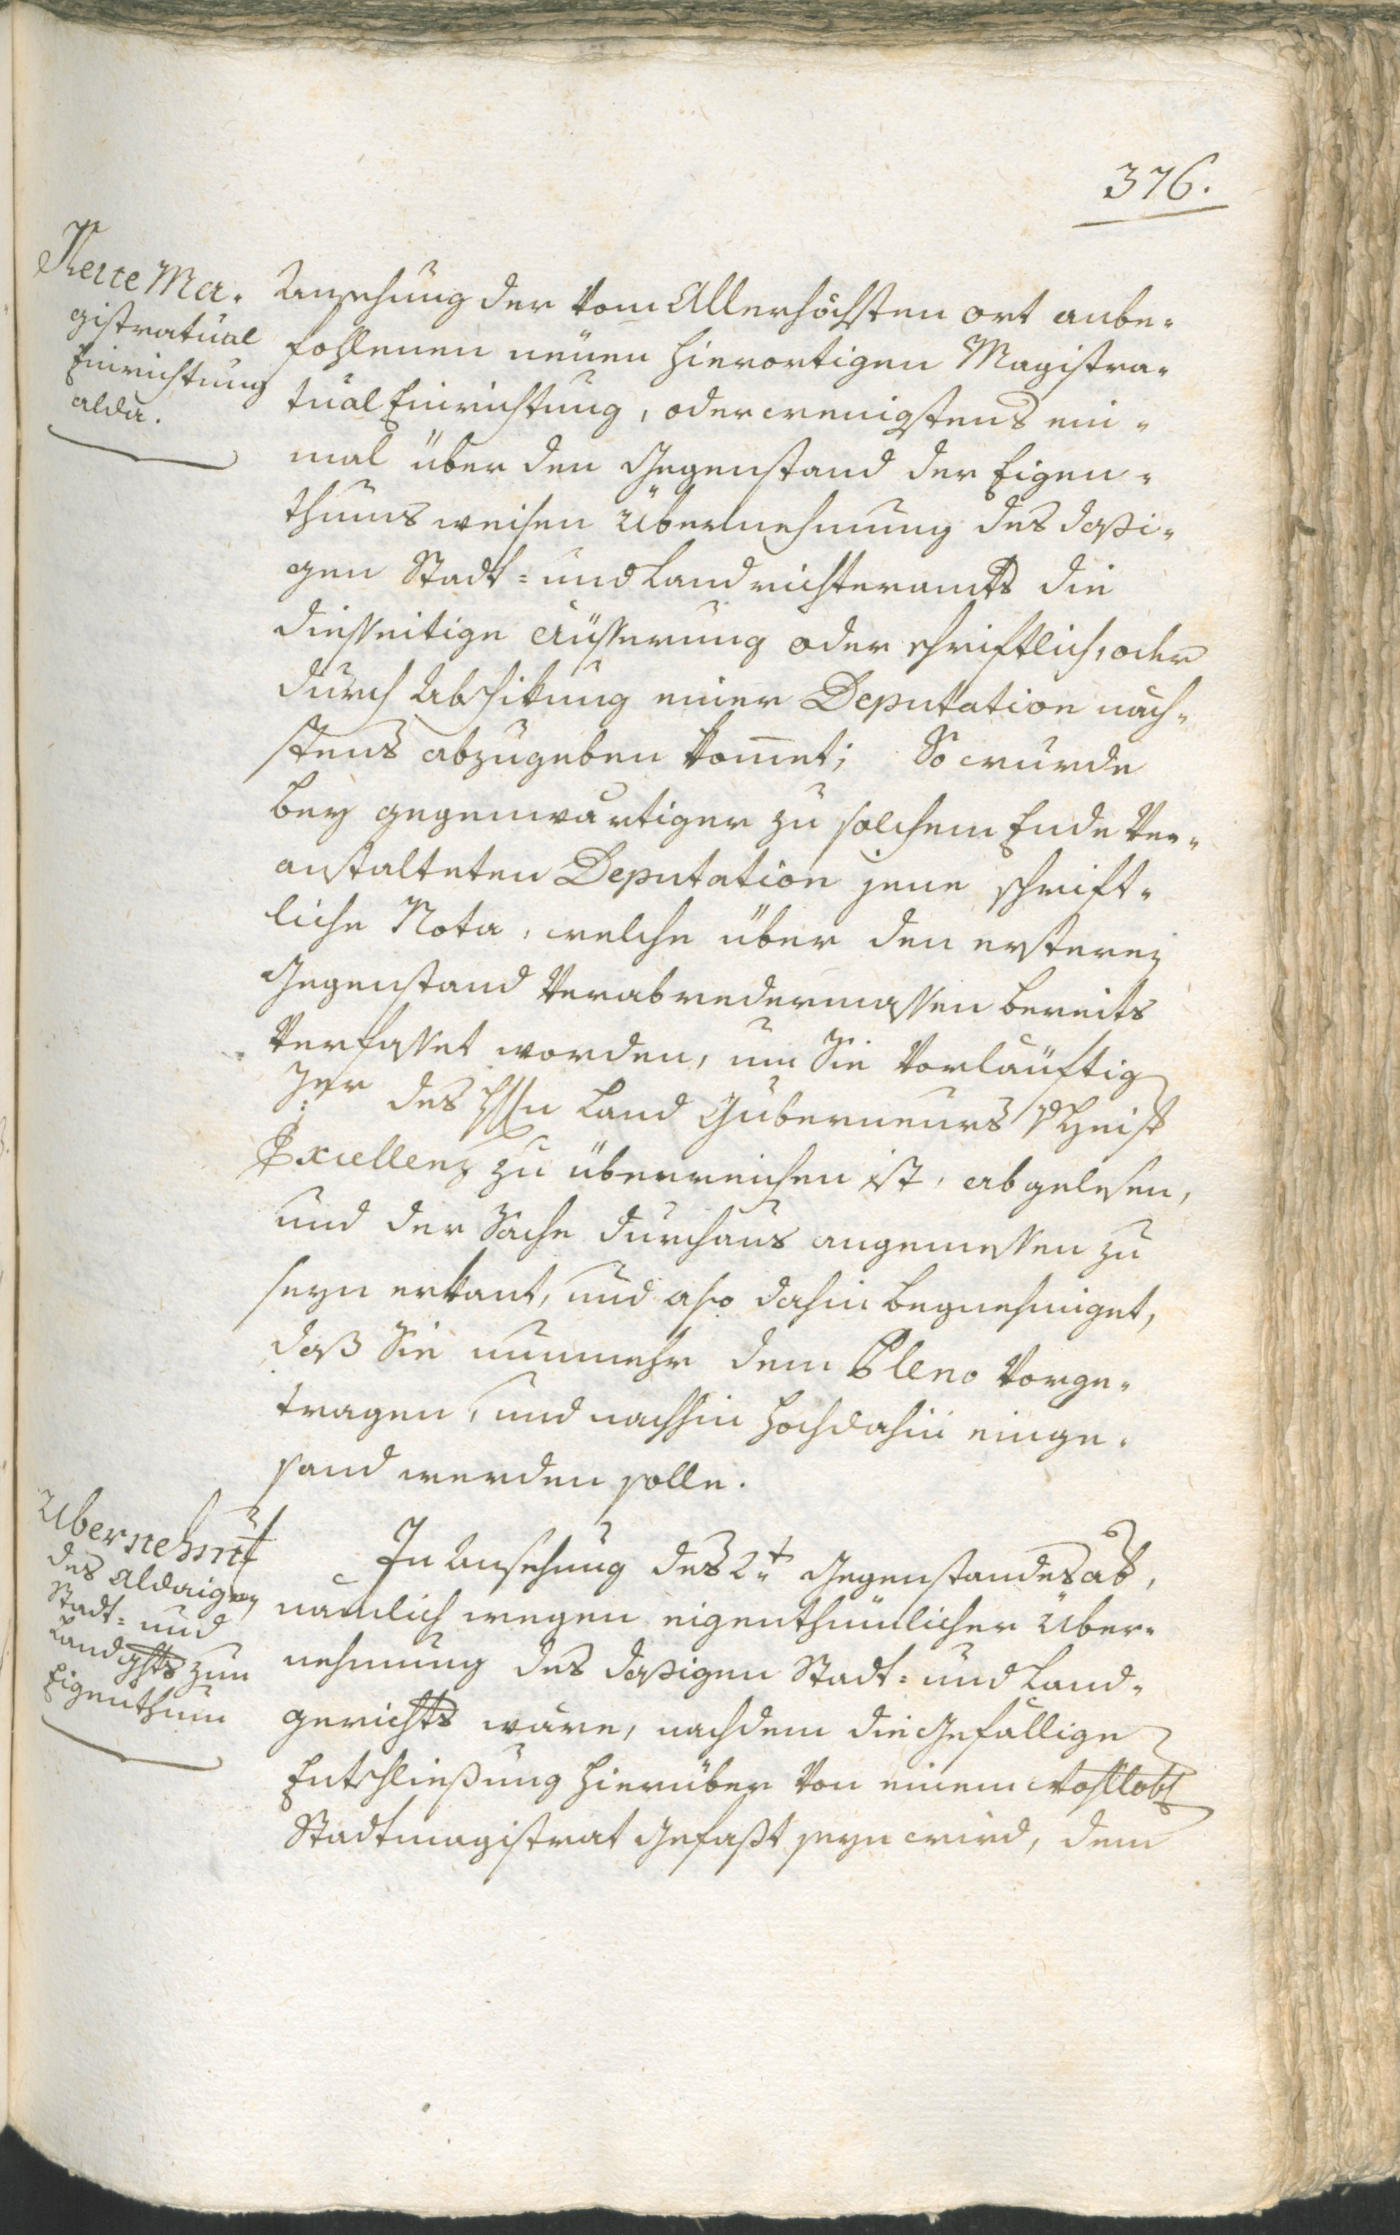 376.
Neüe Ma-
gistratual
Einrichtung
alda.
Ansehung der vom Allerhöchsten ort anbe-
fohlenen neüen hierortigen Magistra-
tual Einrichtung, oder wenigstens ein-
mal über den Gegenstand der Eigen-
thums weisen Übernehmung des daßi-
gen Stadt- und Landrichteramts die
diesseitige Äüsserung oder schriftlich, oder
durch Abschikung einer Deputation näch-
stens abzugeben kommet; So wurde
bey gegenwärtiger zu solchem Ende ver-
anstalteten Deputation jene schrift-
liche Nota, welche über den ersteren
Gegenstand verabredermassen bereits
verfasset worden, um Sie vorläüftig
des Land Guberneurs
Excellenz zu überreichen ist, abgelesen,
und der Sache durchaus angemessen zu
seyn erkant, und also dahin begnehmiget,
daß Sie nunmehr dem Pleno vorge-
tragen, und nachhin hochdahin einge-
sand werden solle.
Übernehmung
des aldaigen
Stadt- und
Landghts zum
Eigenthum
In Ansehung des 2t Gegenstandes ab,
nämlich wegen eigenthümlicher Über-
nehmung des daßigen Stadt- und Land-
gerichts wäre, nachdem die Gefällige
Entschließung hierüber von einem Wohllobl
Stadtmagistrat gefaßt seyn wird, dem